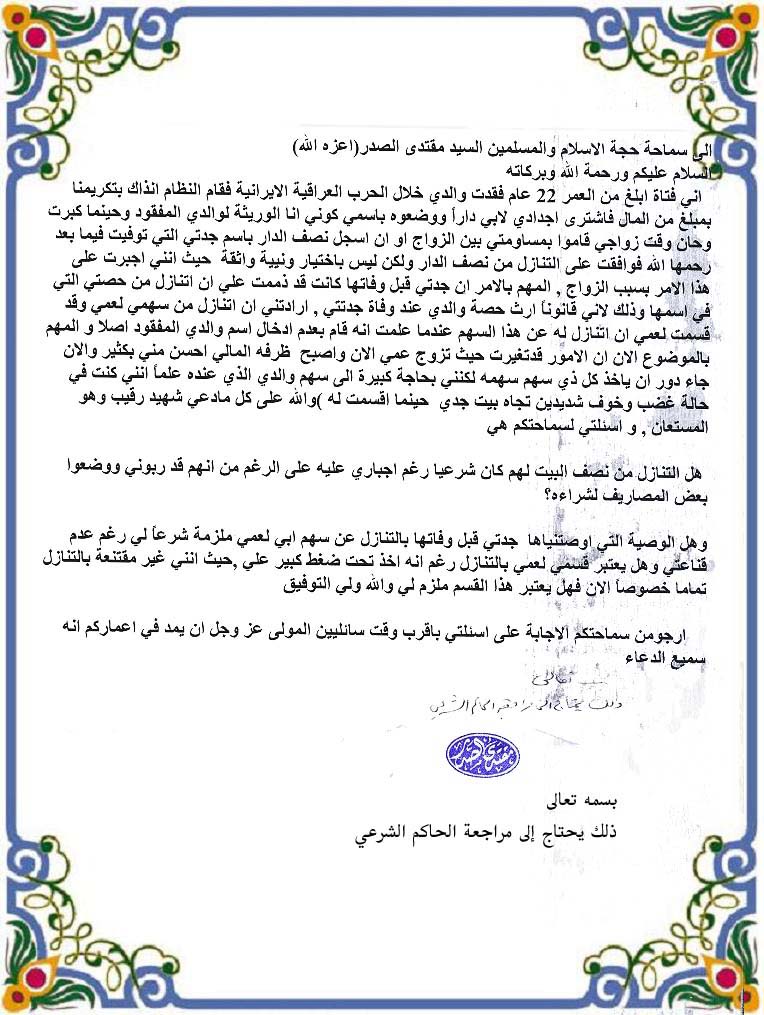 الى سماحة حجة الاسلام والمسلمين السيد مقتدى الصدر(اعزه الله)
السلام عليكم ورحمة الله وبركاته
اني فتاة ابلغ من العمر 22 عام فقدت والدي خلال الحرب العراقية الايرانية فقام النظام انذاك بتكريمنا
بمبلغ من المال فاشترى اجدادي لابي داراً ووضعوه باسمي كوني انا الوريثة لوالدي المفقود وحينما كبرت
وحان وقت زواجي قاموا بمساومتي بين الزواج او ان اسجل نصف الدار باسم جدتي التي توفيت فيما بعد
رحمها الله فوافقت على التنازل من نصف الدار ولكن ليس باختيار ونيية واثقة حيث انني اجبرت على
هذا الامر بسبب الزواج , المهم بالامر ان جدتي قبل وفاتها كانت قد ذممت علي ان اتنازل من حصتي التي
في اسمها وذلك لاني قانوناً ارث حصة والدي عند وفاة جدتتي , ارادتني ان اتنازل من سهمي لعمي وقد
قسمت لعمي ان اتنازل له عن هذا السهم عندما علمت انه قام بعدم ادخال اسم والدي المفقود اصلا و المهم
بالموضوع الان ان الامور قدتغيرت حيث تزوج عمي الان واصبح ظرفه المالي احسن مني بكثير والان
جاء دور ان ياخذ كل ذي سهم سهمه لكنني بحاجة كبيرة الى سهم والدي الذي عنده علماً انني كنت في
حالة غضب وخوف شديدين تجاه بيت جدي حينما اقسمت له )والله على كل مادعي شهيد رقيب وهو
المستعان , و اسئلتي لسماحتكم هي
هل التنازل من نصف البيت لهم كان شرعيا رغم اجباري عليه على الرغم من انهم قد ربوني ووضعوا
بعض المصاريف لشراءه؟
وهل الوصية التي اوصتنياها جدتي قبل وفاتها بالتنازل عن سهم ابي لعمي ملزمة شرعاً لي رغم عدم
قناعتي وهل يعتبر قسمي لعمي بالتنازل رغم انه اخذ تحت ضغط كبير علي ,حيث انني غير مقتنعة بالتنازل
تماما خصوصاً الان فهل يعتبر هذا القسم ملزم لي والله ولي التوفيق
ارجومن سماحتكم الاجابة على اسئلتي باقرب وقت سائليين المولى عز وجل ان يمد في اعماركم انه
سميع الدعاء
تعالى
ذلك يحتاج الى مراجعة الحاكم الشرعي
بسمه تعالى
ذلك يحتاج إلى مراجعة الحاكم الشرعي